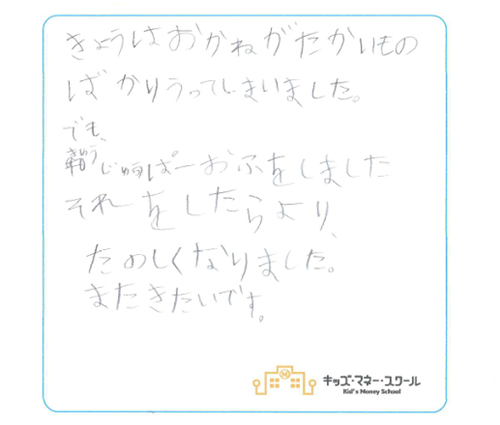 きょうはおかねがたかいもの
ばかりうってしまいました。
でも、
きゅう
じゅうぱーおふをしました
それーをしたらより、
たのしくなりました。
またきたいです。
キッズ・マネー・スクール
Kid's Money School